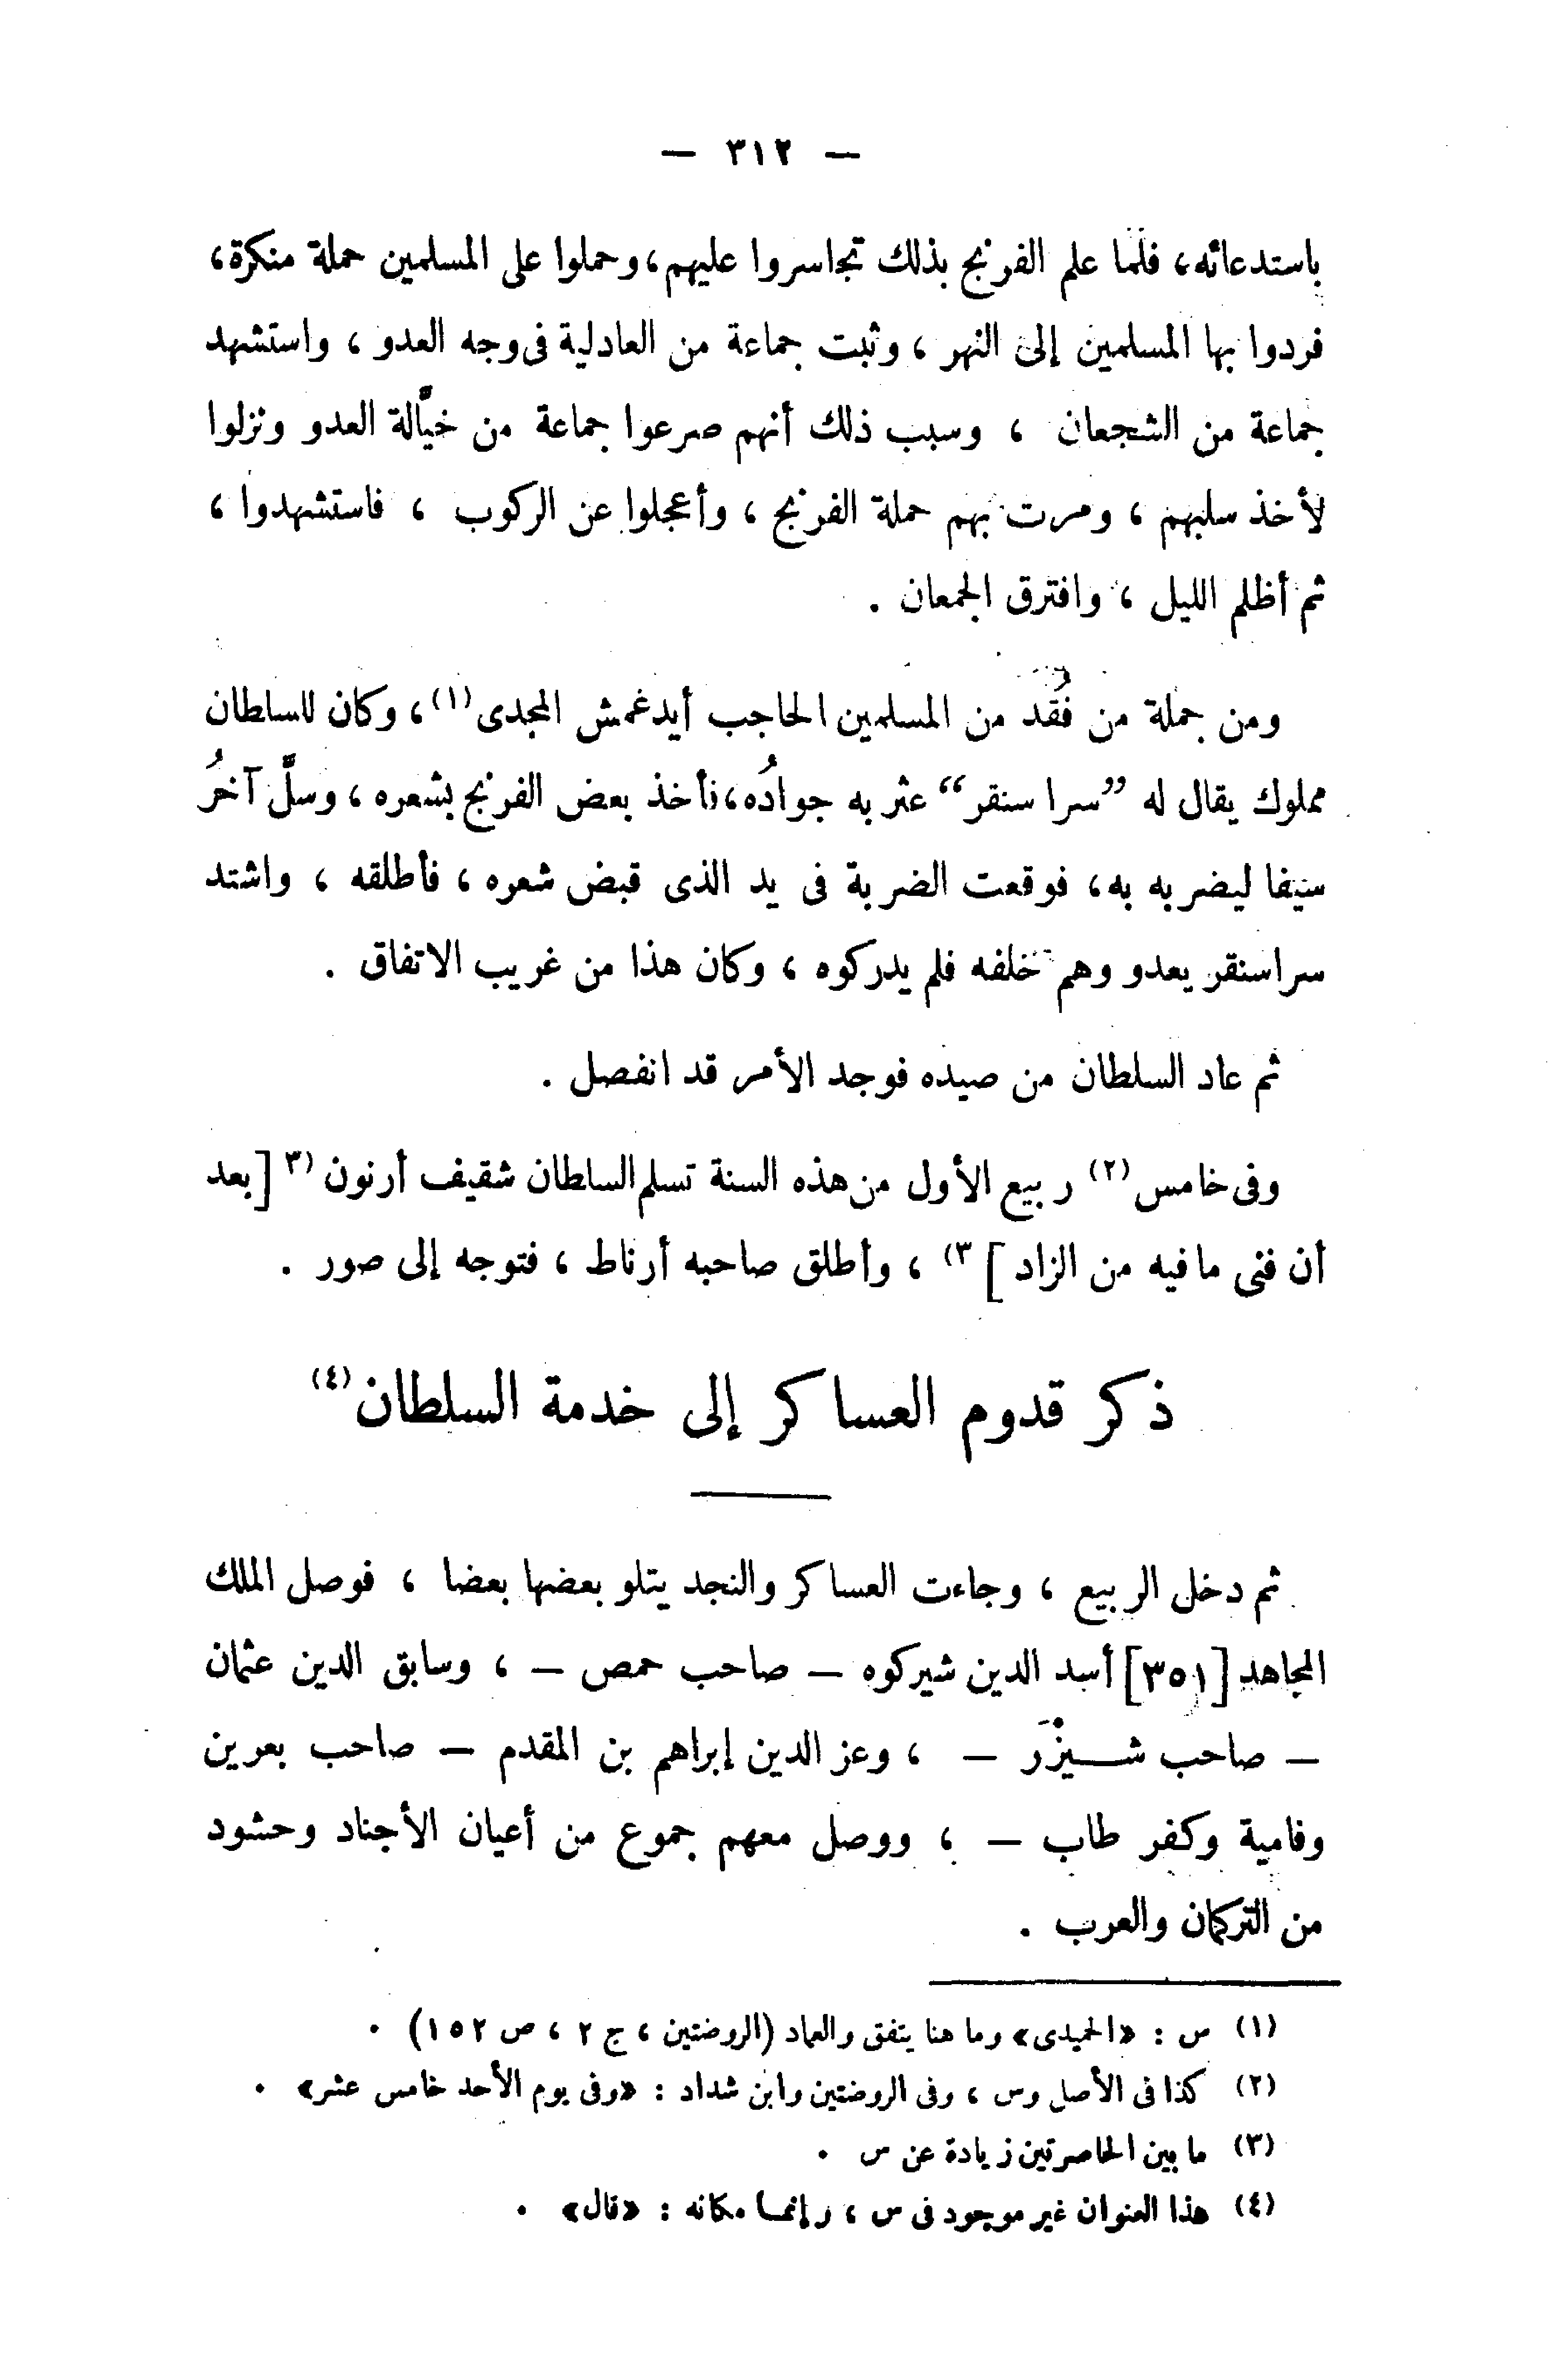 — ٣١٢ —
باستدعائه، فلما علم الفرنج بذلك تجاسروا عليهم، وحملوا على المسلمين حملة منكرة،
فردوا بها المسلمين إلى النهر ، وثبت جماعة من العادلية فى وجه العدو ، واستشهد
جماعة من الشجعان ، وسبب ذلك أنهم صرعوا جماعة من خيَّالة العدو ونزلوا
لأخذ سلبهم ، ومرت بهم حملة الفرنج ، وأعجلوا عن الركوب ، فاستشهدوا ،
ثم أظلم الليل ، وافترق الجمعان .
ومن جملة من فُقدَ من المسلمين الحاجب أيدغمش المجدى(١)، وكان للسلطان
مملوك يقال له ”سرا سنقر“ عثر به جوادُه، فأخذ بعض الفرنج بشعره ، وسلَّ آخرُ
سيفا ليضربه به، فوقعت الضربة فى يد الذى قبض شعره ، فأطلقه ، واشتد
سراسنقر يعدو وهم خلفه فلم يدركوه ، وكان هذا من غريب الاتفاق .
ثم عاد السلطان من صيده فوجد الأمر قد انفصل .
وفى خامس(٢) ربيع الأول من هذه السنة تسلم السلطان شقيف أرنون (٣ [بعد
أن فنى ما فيه من الزاد ] ٣) ، وأطلق صاحبه أرناط ، فتوجه إلى صور .
ذكر قدوم العساكر إلى خدمة السلطان(٤)
ثم دخل الربيع ، وجاءت العساكر والنجد يتلو بعضها بعضا ، فوصل الملك
المجاهد [٣٥١] أسد الدين شيركوه — صاحب حمص — ، وسابق الدين عثمان
— صاحب شيْزَر — ، وعز الدين إبراهم بن المقدم — صاحب بعرين
وفامية وكفر طاب — ، ووصل معهم جموع من أعيان الأجناد وحشود
من التركمان والعرب .
(١) س : «الحميدى» وما هنا يتفق والعماد (الروضتين ، ج ٢ ، ص ١٥٢) .
(٢) كذا فى الأصل وس ، وفى الروضتين وابن شداد : «وفى يوم الأحد خامس عشر» .
(٣) ما بين الحاصرتين زيادة عن س .
(٤) هذا العنوان غير موجود فى س ، وإنما مكانه : «قال» .